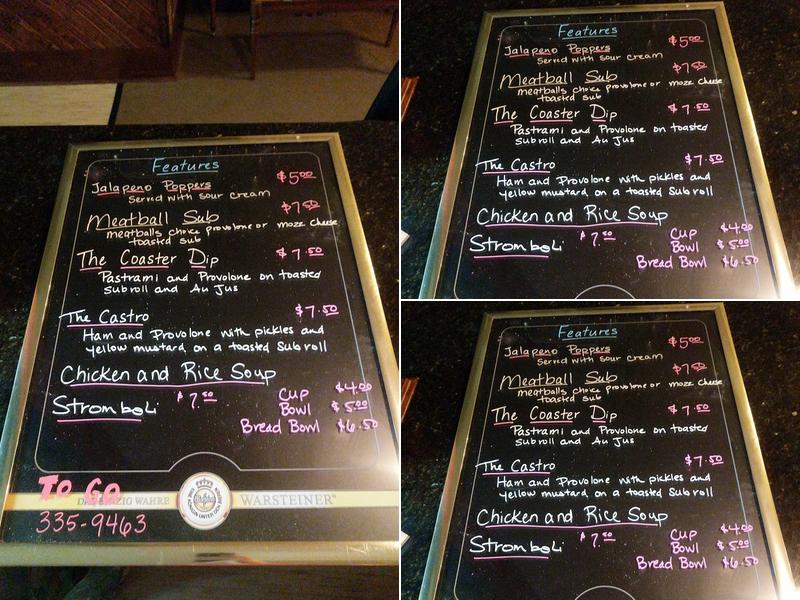 Features
Jalapeno Poppers $5.00
Served with sour cream
Meatball Sub $7.50
meatballs choice provolone or mozz cheese
toasted sub
The Coaster Dip $7.50
Pastrami and Provolone on toasted
subroll and Au Jus
The Castro $7.50
Ham and Provolone with pickles and
yellow mustard on a toasted Sub roll
Chicken and Rice Soup
Cup $4.00
Stromboli $7.50
Bowl $5.00
Bread Bowl $6.50
TO GO
WAHRE WARSTEINER
335-9463
Features
Jalapeno Poppers $5.00
Served with sour cream
Meatball Sub $7.50
meatballs choice provolone or mozz cheese
toasted sub
The Coaster Dip $7.50
Pastrami and Provolone on toasted
subroll and Au Jus
The Castro $7.50
Ham and Provolone with pickles and
yellow mustard on a toasted Sub roll
Chicken and Rice Soup
Cup $4.00
Stromboli $7.50
Bowl $5.00
Bread Bowl $6.50
Features
Jalapeno Poppers $5.00
Served with sour cream
Meatball Sub $7.50
meatballs choice provolone or mozz cheese
toasted sub
The Coaster Dip $7.50
Pastrami and Provolone on toasted
subroll and Au Jus
The Castro $7.50
Ham and Provolone with pickles and
yellow mustard on a toasted Sub roll
Chicken and Rice Soup
Cup $4.00
Stromboli $7.50
Bowl $5.00
Bread Bowl $6.50